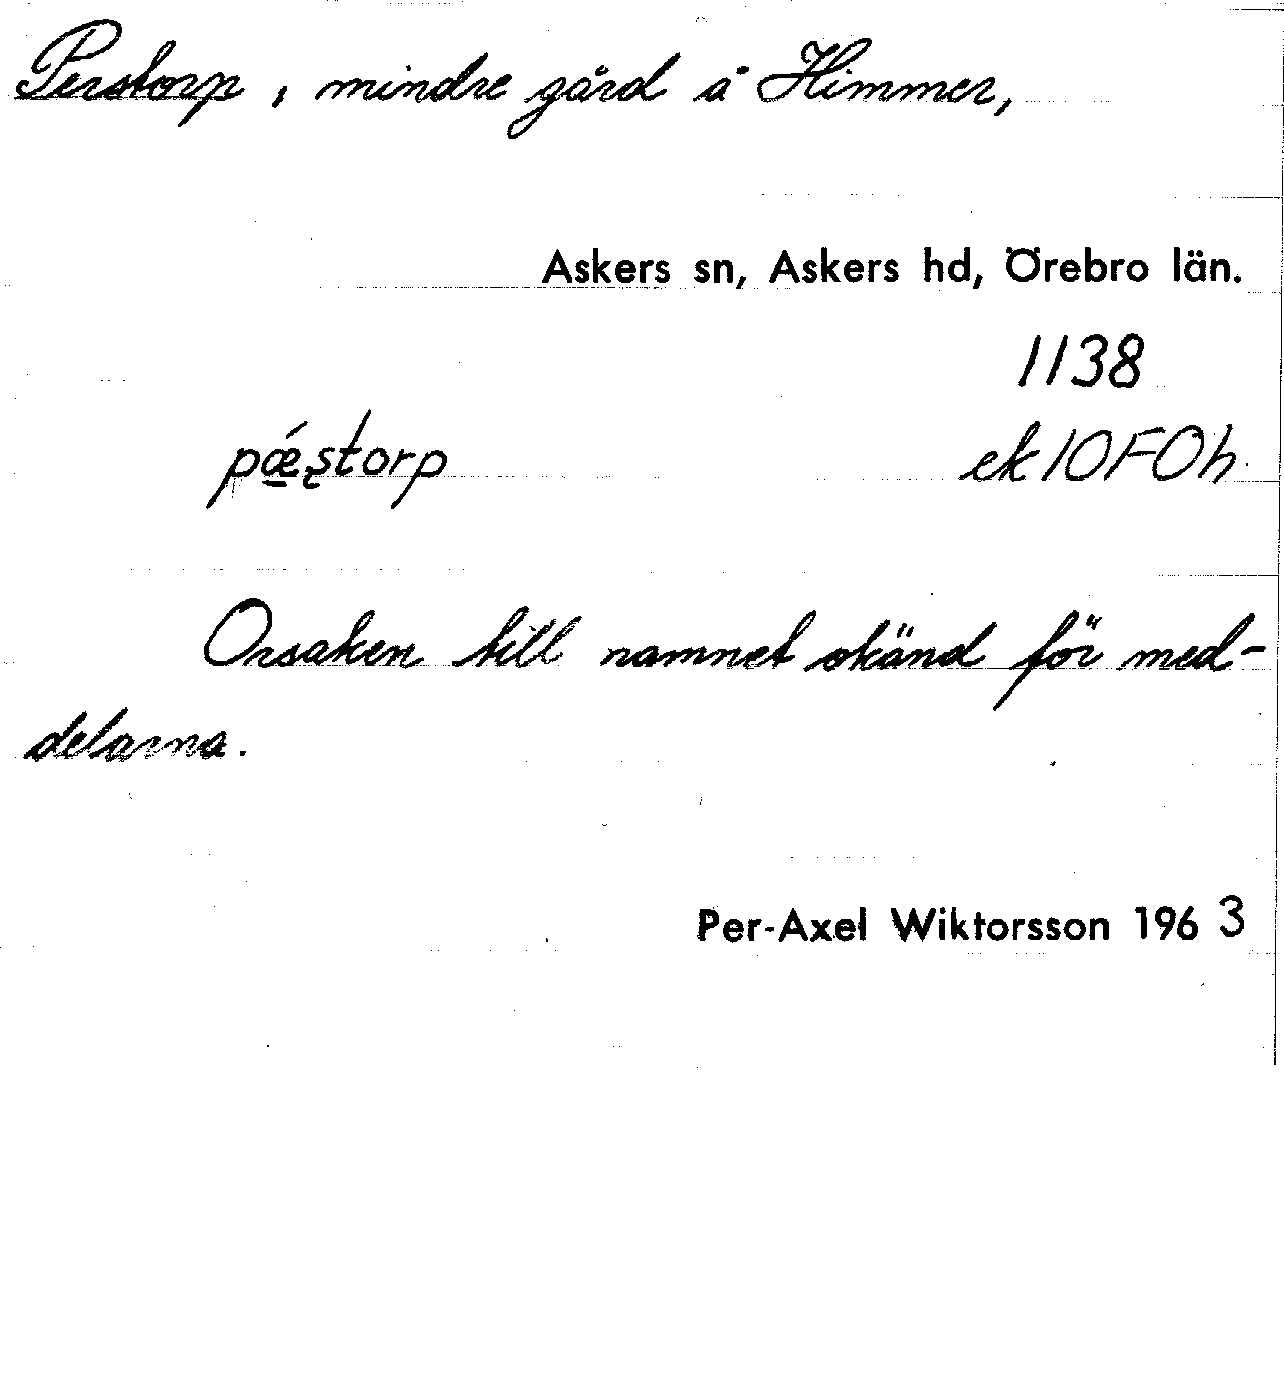 Perstorp, mindre gård å Himmer,
Askers sn, Askers hd, Örebro län.
1138
pǽ̱ştorp ek 10 F0h
Orsaken till namnet okänd för med-
delarna.
Per-Axel Wiktorsson 1963